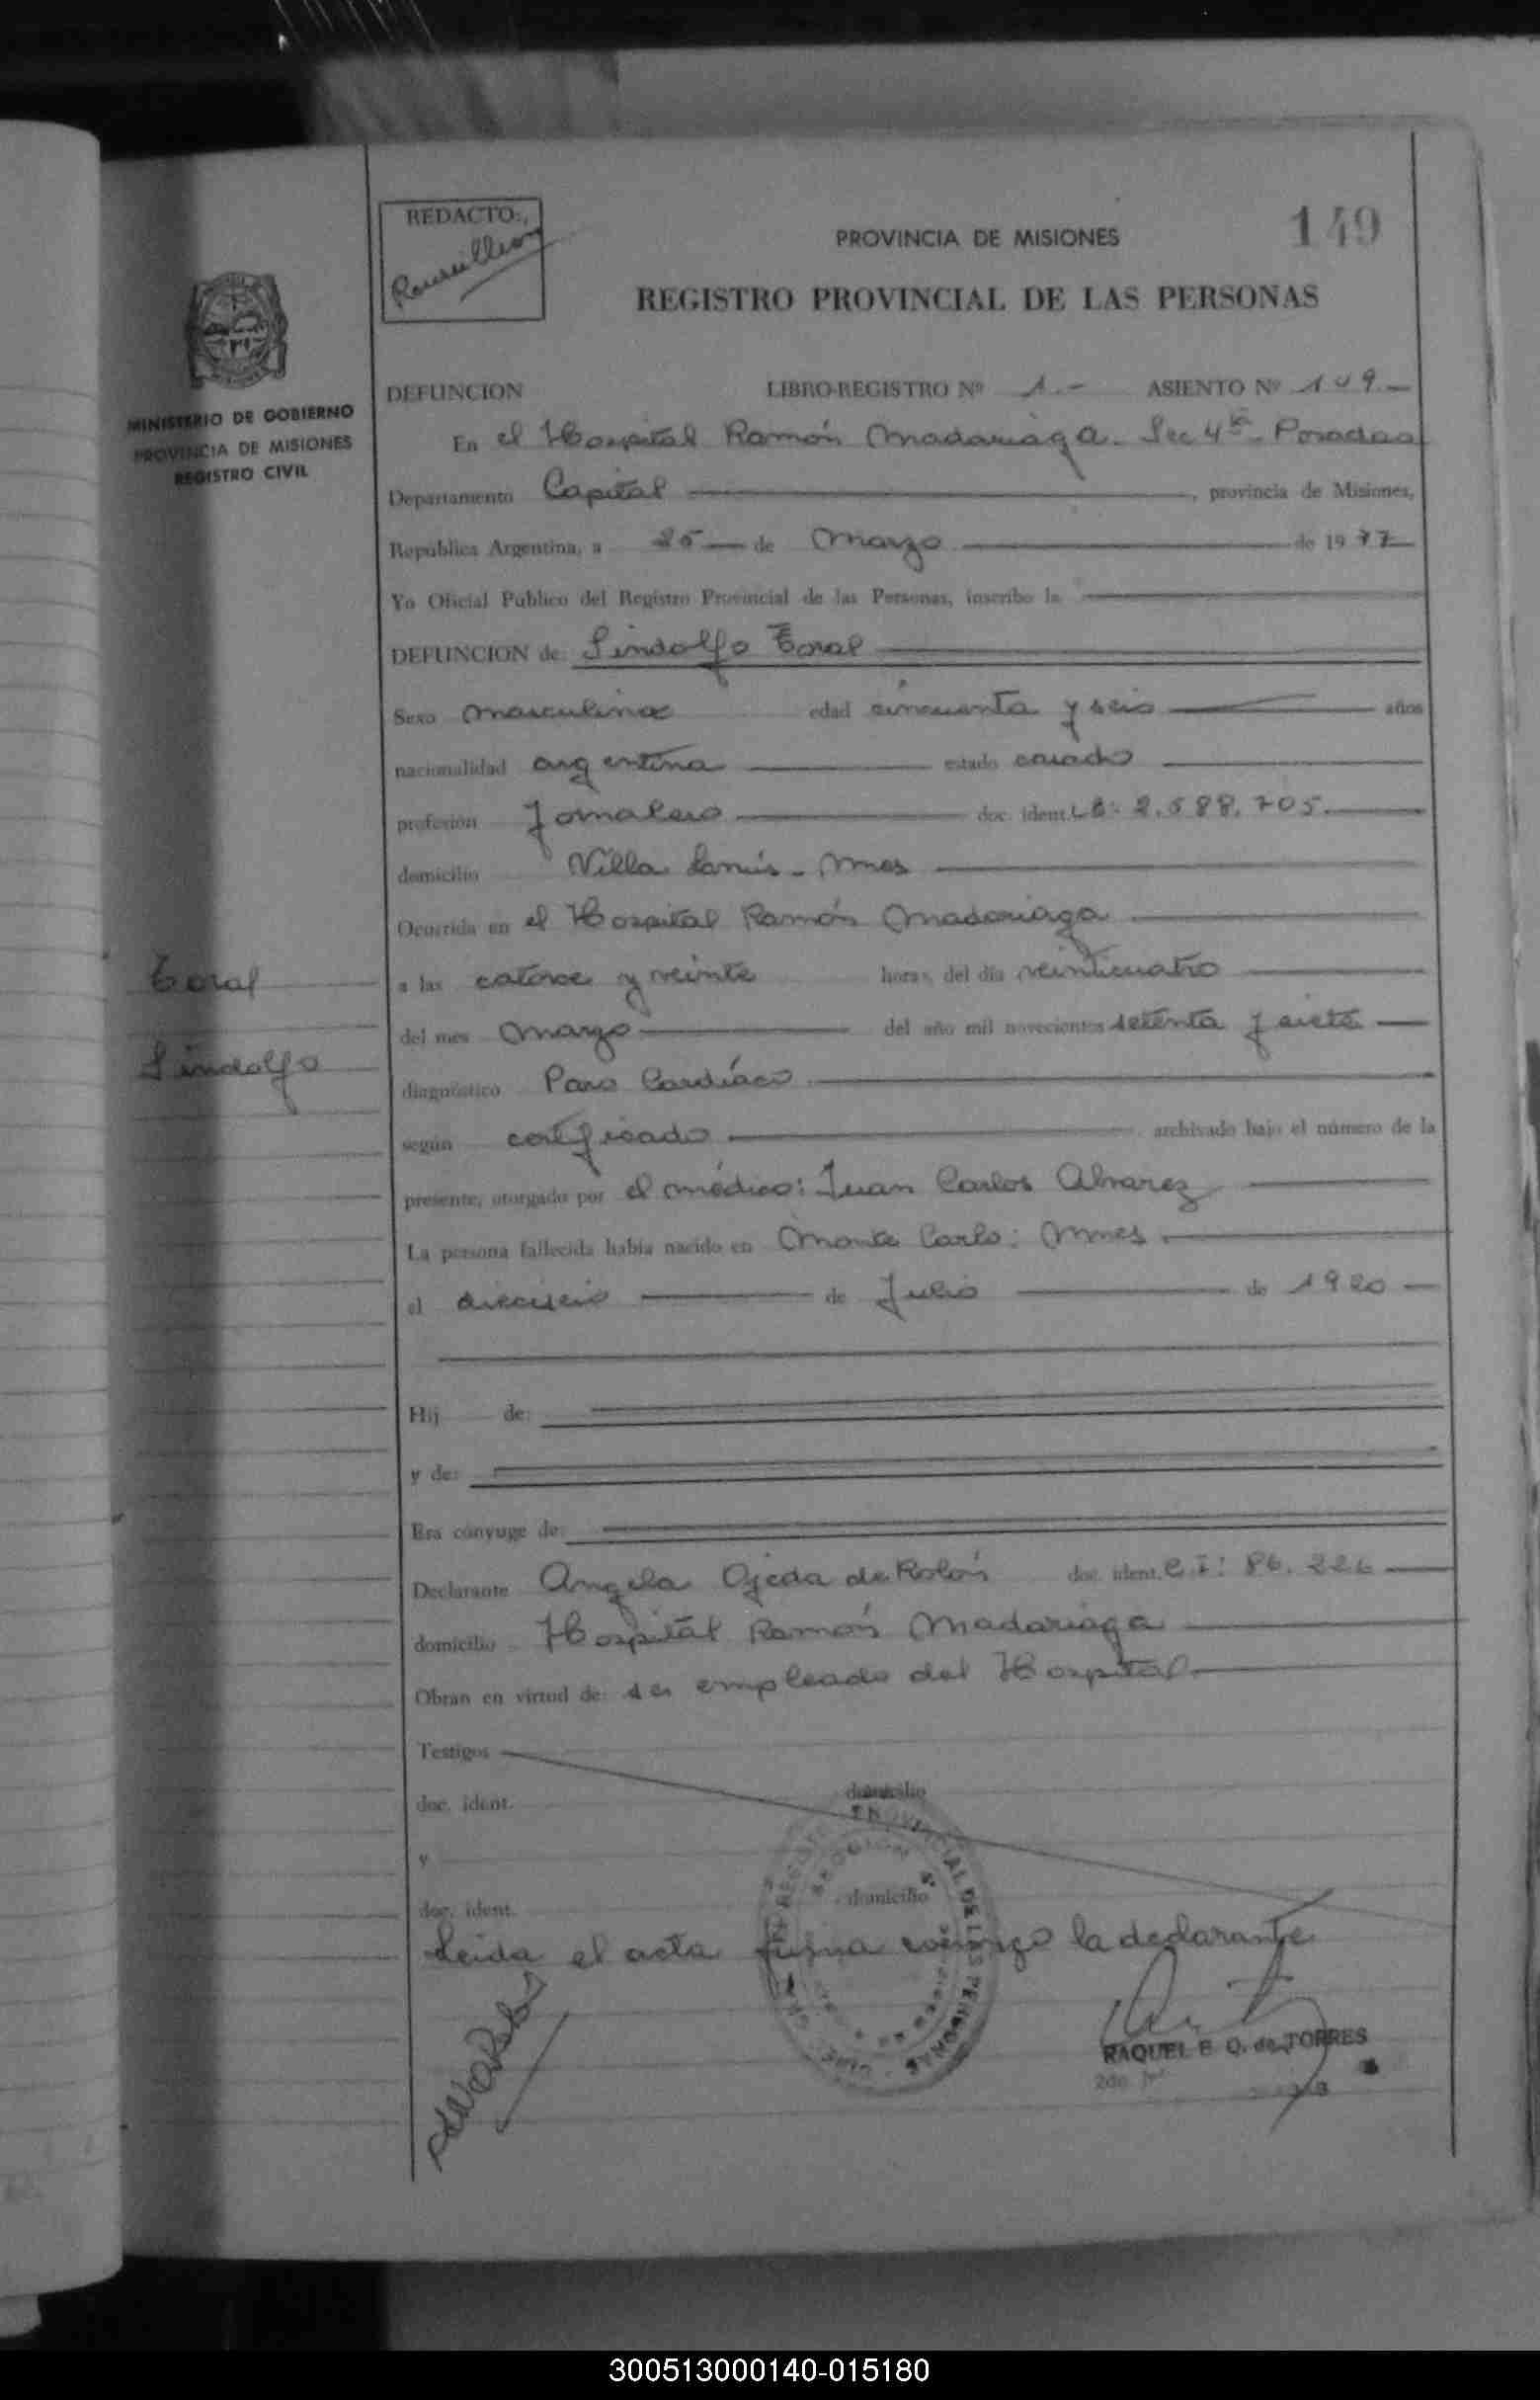 REDACTO:
149
PROVINCIA DE MISIONES
REGISTRO PROVINCIAL DE LAS PERSONAS
MINISTERIO DE GOBIERNO
PROVINCIA DE MISIONES
REGISTRO CIVIL
DEFUNCION LIBRO-REGISTRO Nº 1.- ASIENTO Nº 149.-
En el Hospital Ramón Madariaga - Sec 4ta - Posadas
Departamento Capital, provincia de Misiones,
República Argentina, a 25 de Marzo de 1977
Yo Oficial Público del Registro Provincial de las Personas, inscribo la
DEFUNCION de: Lindolfo Toral
Sexo masculino edad cincuenta y seis años
nacionalidad argentina estado casado
profesión Jornalero doc. ident. L.E: 2.588.705.
domicilio Villa Lanús - Mnes
Ocurrida en el Hospital Ramón Madariaga
a las catorce y veinte horas, del día veinticuatro
del mes Marzo del año mil novecientos setenta y siete
Toral
Lindolfo
diagnóstico Paro Cardíaco
según certificado archivado bajo el número de la
presente, otorgado por el médico: Juan Carlos Alvarez
La persona fallecida había nacido en Monte Carlo: Mnes
el dieciseis de Julio de 1920
Hij de:
y de:
Era cónyuge de:
Declarante Angela Ojeda de Rolón doc. ident. C.I: 86.226
domicilio Hospital Ramón Madariaga
Obran en virtud de: ser empleado del Hospital
Testigos
doc. ident. domicilio
y
doc. ident. domicilio
Leida el acta firma conmigo la declarante
REGISTRO PROVINCIAL DE LAS PERSONAS
SECCION 4ª
RAQUEL E. Q. de TORRES
300513000140-015180